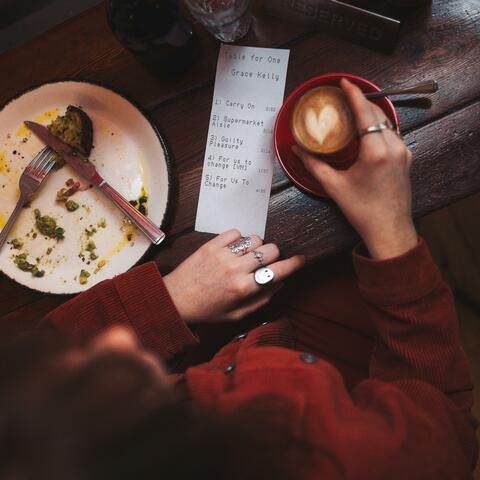 RESERVED
Table for One
Grace Kelly
1) Carry On
2) Supermarket
Aisle
3) Guilty
Pleasure
4) For us to
change [VM]
5) For Us To
Change